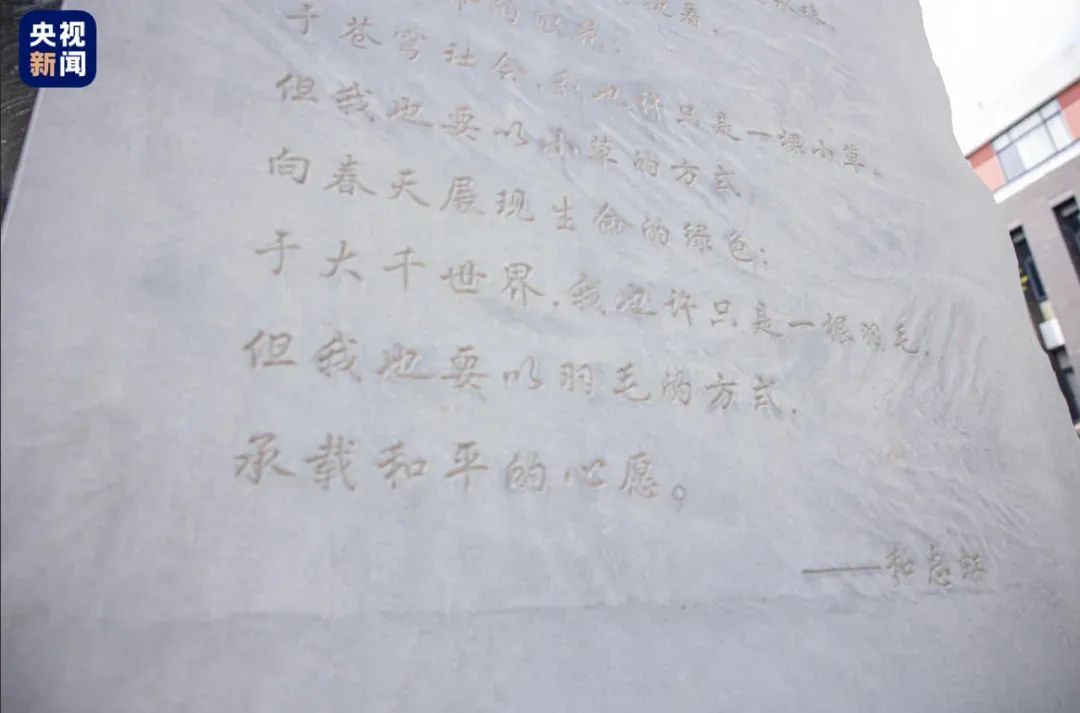 央视
新闻
于苍穹社会，我也许只是一棵小草。
但我也要以小草的方式，
向春天展现生命的绿色；
于大千世界，我也许只是一根羽毛，
但我也要以羽毛的方式，
承载和平的心愿。
——和志虹